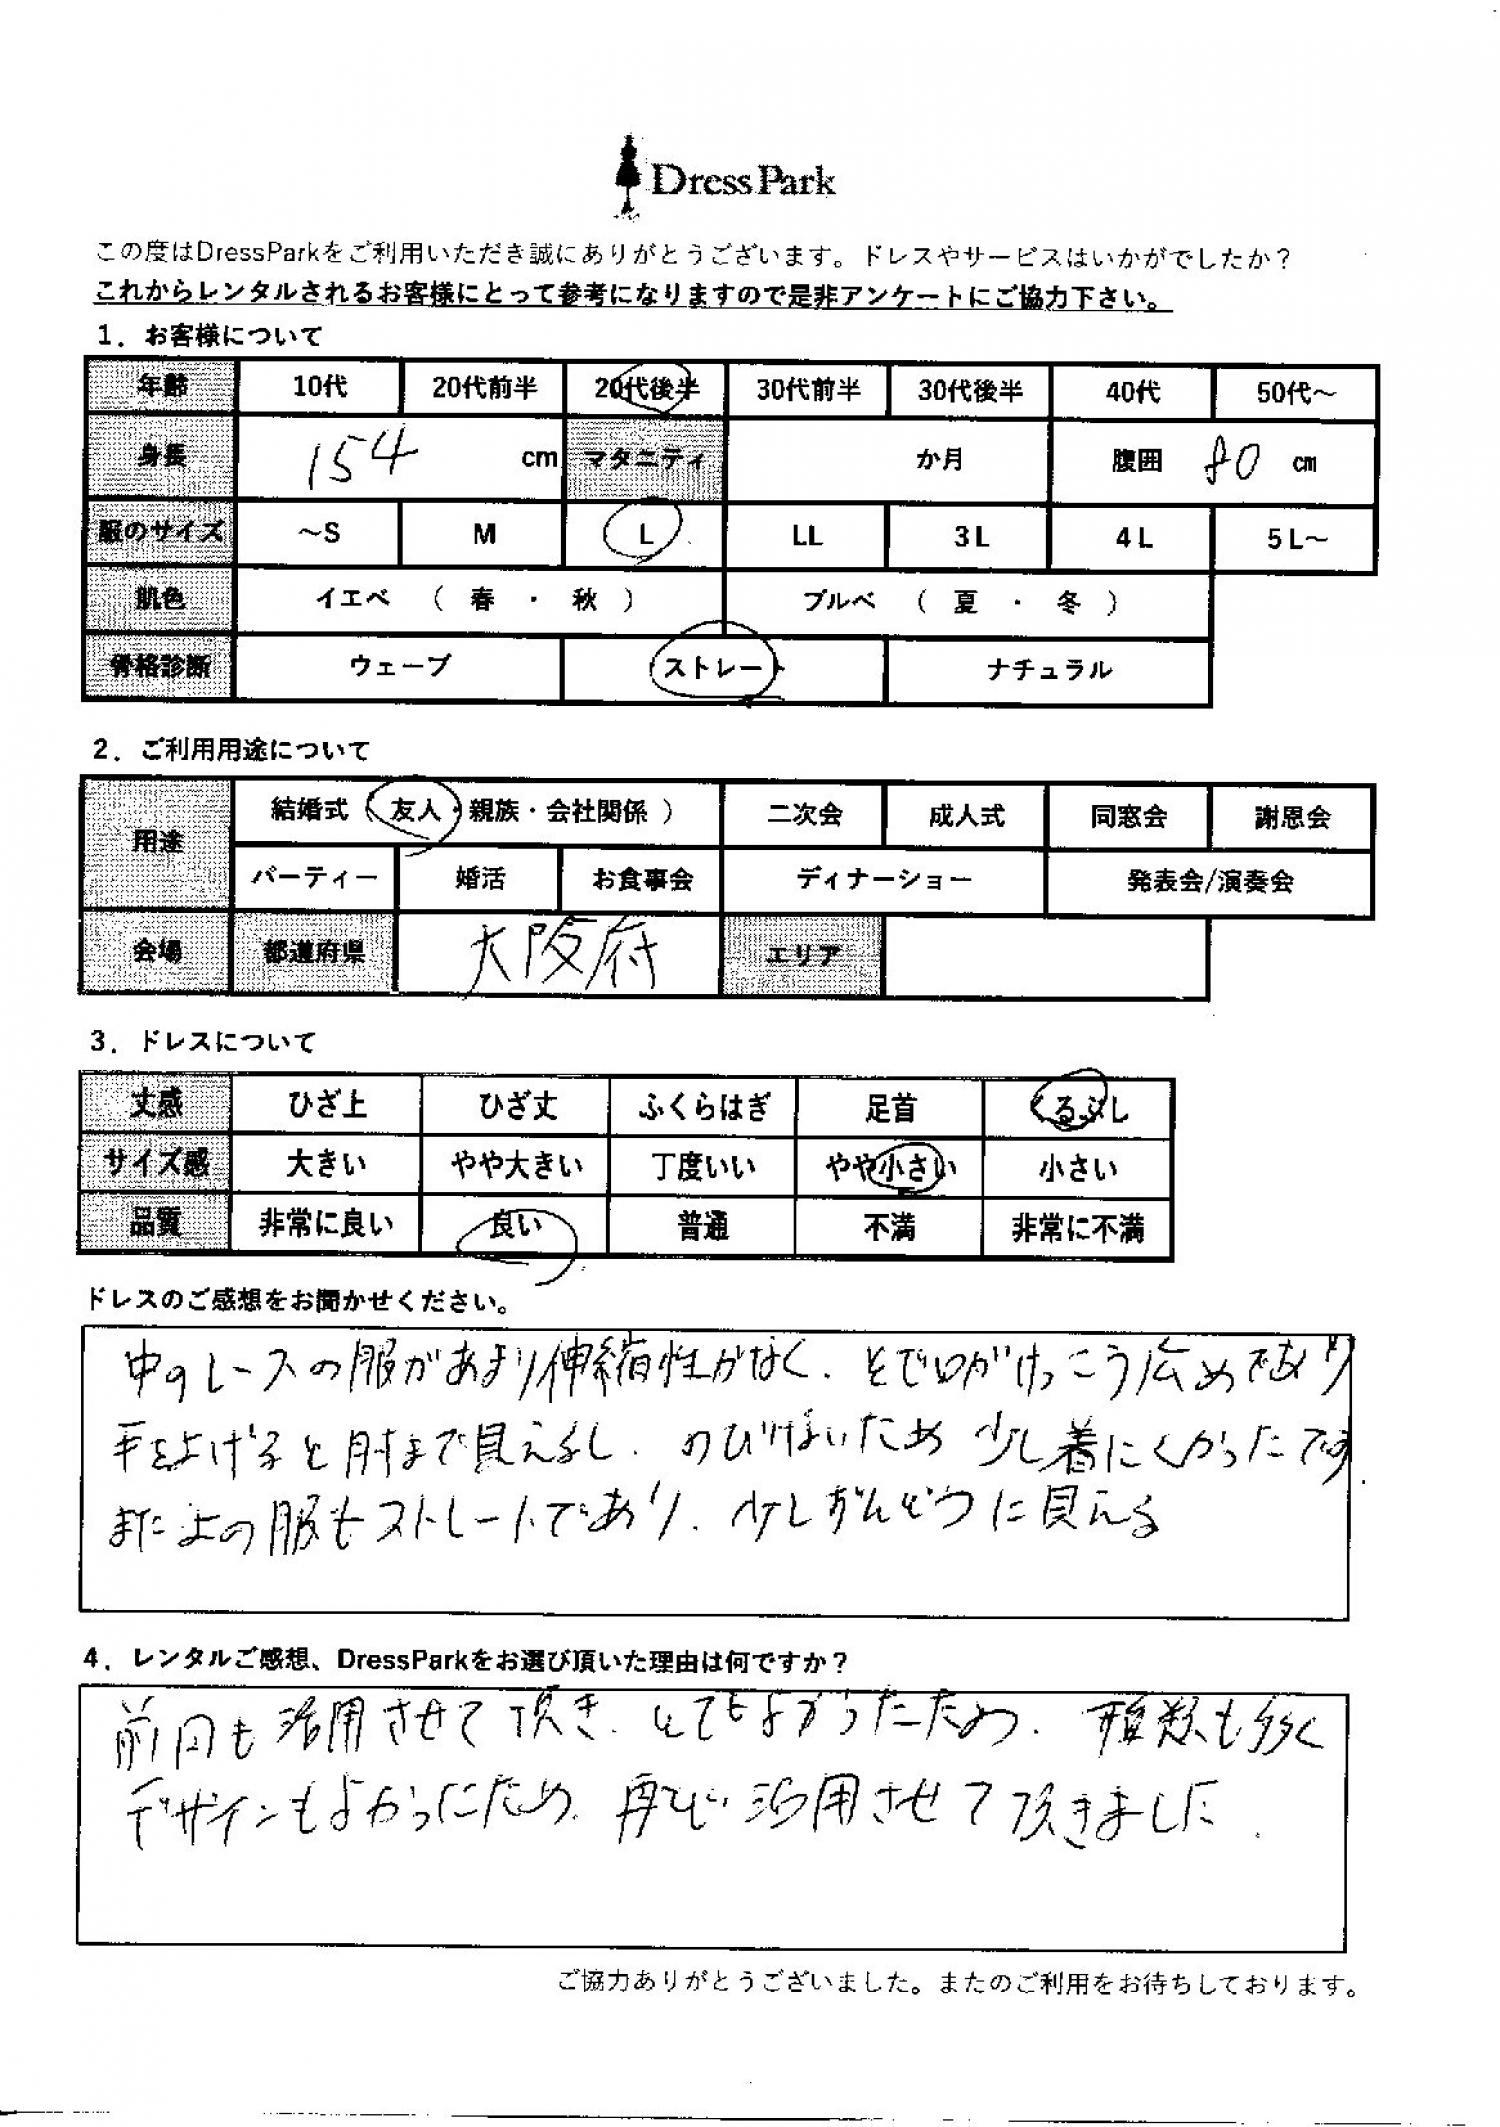 DressPark
この度はDressParkをご利用いただき誠にありがとうございます。ドレスやサービスはいかがでしたか?
これからレンタルされるお客様にとって参考になりますので是非アンケートにご協力下さい。
1. お客様について
年齢 10代 20代前半 20代後半 30代前半 30代後半 40代 50代～
身長 154 cm マタニティ か月 腹囲 80 cm
服のサイズ ～S M L LL 3L 4L 5L～
肌色 イエベ ( 春 ・ 秋 ) ブルベ ( 夏 ・ 冬 )
骨格診断 ウェーブ ストレート ナチュラル
2. ご利用用途について
用途 結婚式 (友人・親族・会社関係 ) 二次会 成人式 同窓会 謝恩会
パーティー 婚活 お食事会 ディナーショー 発表会/演奏会
会場 都道府県 大阪府 エリア
3. ドレスについて
丈感 ひざ上 ひざ丈 ふくらはぎ 足首 くるぶし
サイズ感 大きい やや大きい 丁度いい やや小さい 小さい
品質 非常に良い 良い 普通 不満 非常に不満
ドレスのご感想をお聞かせください。
中のレースの服があまり伸縮性がなく、そで口がけっこう広めであり
手を上げると肘まで見えるし、のびないため少し着にくかったです。
また上の服もストレートであり、少しずんどうに見える
4. レンタルご感想、DressParkをお選び頂いた理由は何ですか?
前回も活用させて頂き、とてもよかったため、種類も多く
デザインもよかったため、再び活用させて頂きました。
ご協力ありがとうございました。またのご利用をお待ちしております。